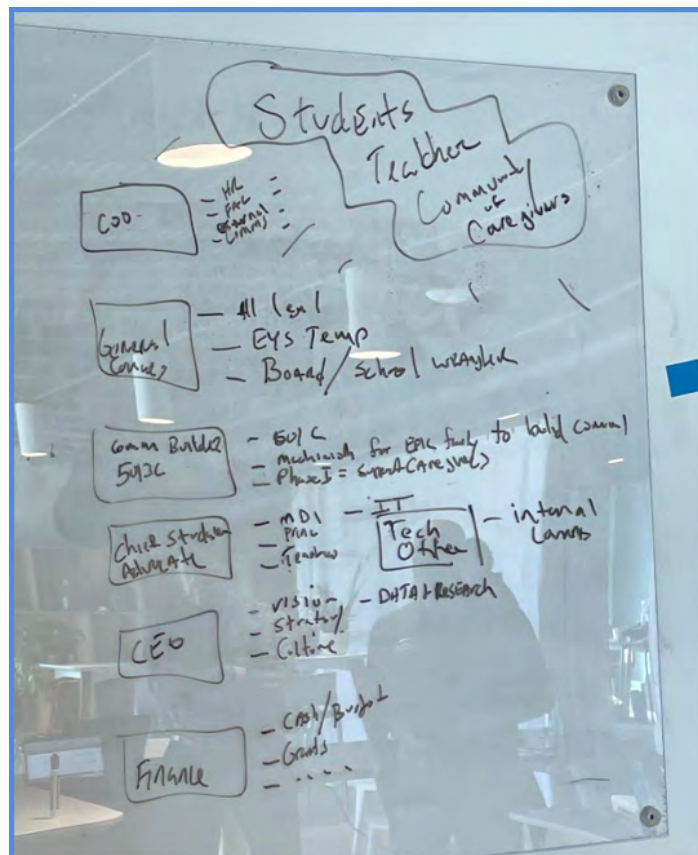 Students
Teacher
Community
of
Caregivers
COO
- HR
- FAC
- External
- Comms
General
- All legal
- EYS Temp
- Board / School wrangler
Comm Builder
5013C
- 501C
- mechanism for EPIC to build comm
- Phase I =
Chief Student
Advocate
- MDI
- Princ
- Teacher
- IT
Tech
Other
- internal
Comms
CEO
- Vision
- Strategy
- Culture
- DATA + RESEARCH
Finance
- Cash/Budget
- Grants
- ....